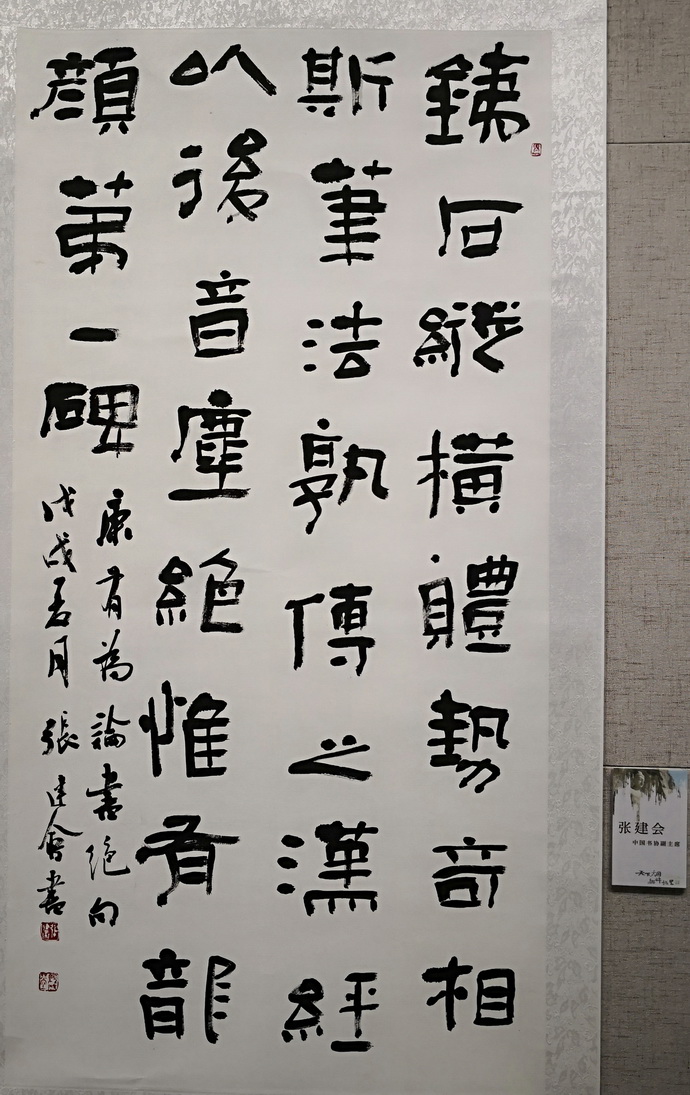 銕石縱橫體勢奇相
斯筆法孰傳之漢經
以後音塵絕惟有龍
顏第一碑
康有為論書絕句
戊戌月張建會書
张建会
中国书协副主席